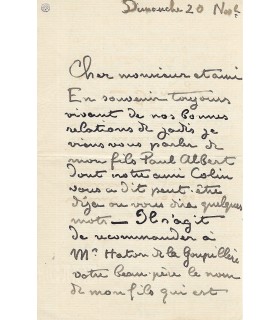 Dimanche 20 Nov.
Cher monsieur et ami
En souvenir toujours
vivant de nos bonnes
relations de jadis je
viens vous parler de
mon fils Paul Albert
dont notre ami Colin
vous a dit peut-être
déja ou vous dira quelques
mots — Il s'agit
de recommander à
Mr Haton de la Goupillière
votre beau-père le nom
de mon fils qui est